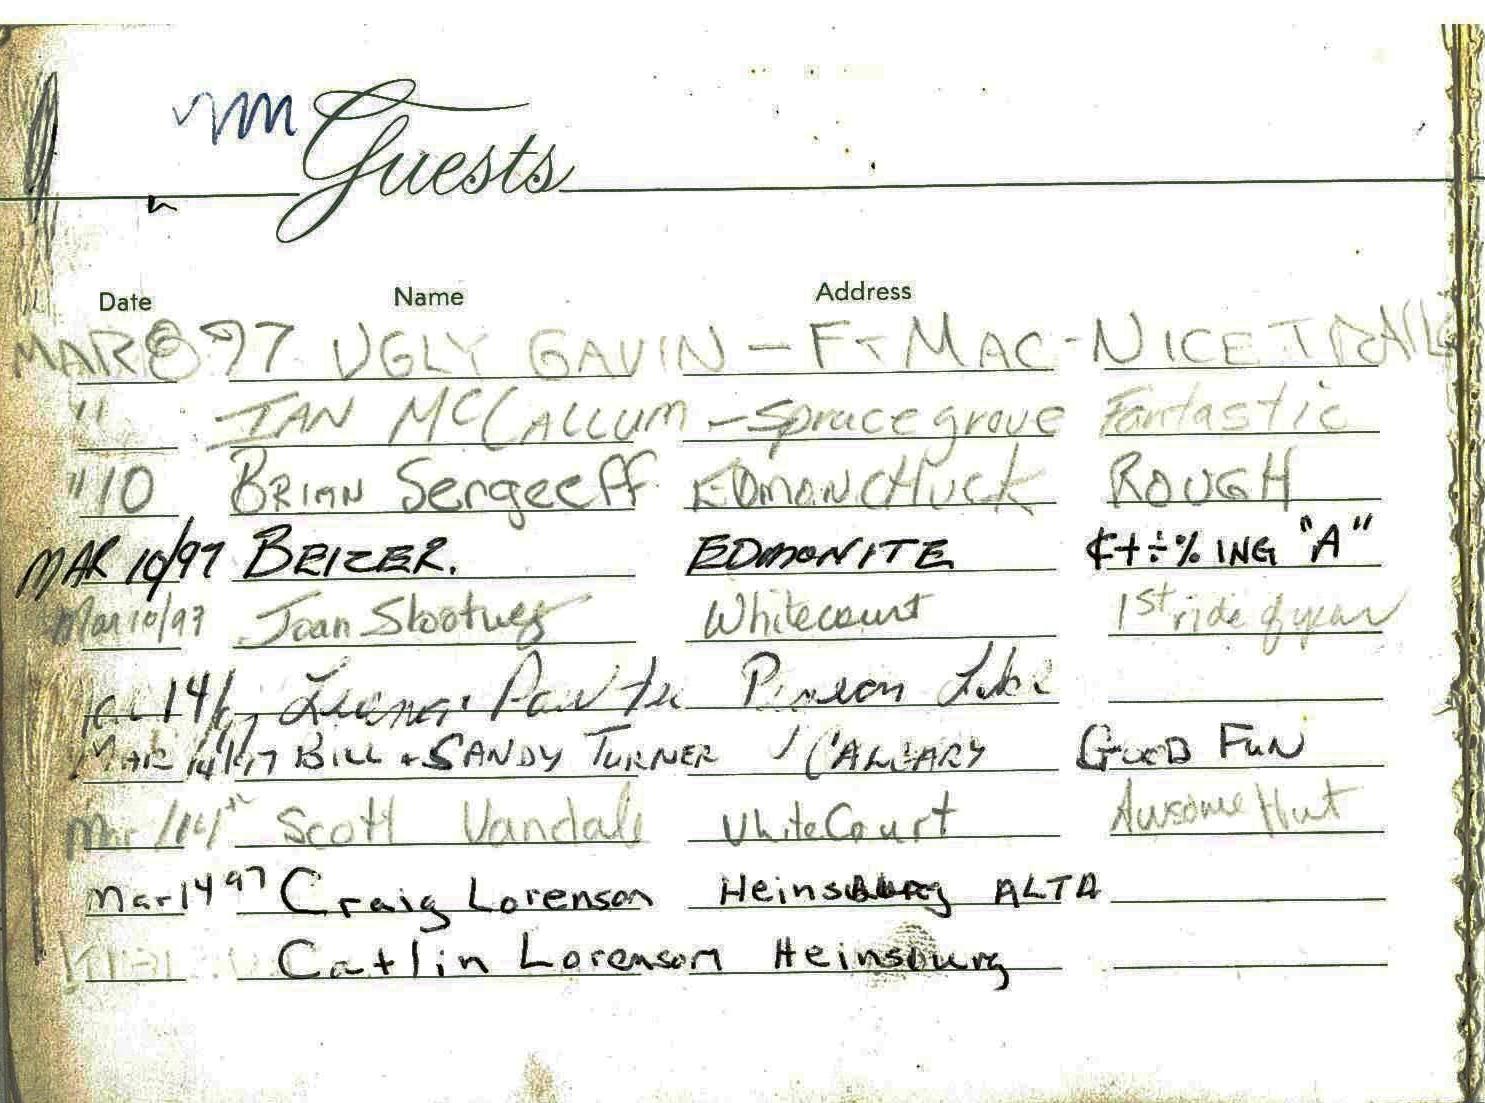 Guests
Date Name Address
MAR 8 97 UGLY GAVIN - FT MAC - NICE TRAILS
" IAN MCCALLUM - Sprucegrove Fantastic
" 10 BRIAN Sergeeff EDMONCHUCK ROUGH
MAR 10/97 BEIZER. EDMONITE ¢+÷% ING "A"
Mar 10/97 Joan Slootweg Whitecourt 1st ride of year
14/
MAR 14/97 BILL + SANDY TURNER / CALGARY GOOD FUN
Mar 14th Scott Vandale WhiteCourt Awsome Hut
Mar 14 97 Craig Lorenson Heinsburg ALTA
Catlin Lorenson Heinsburg